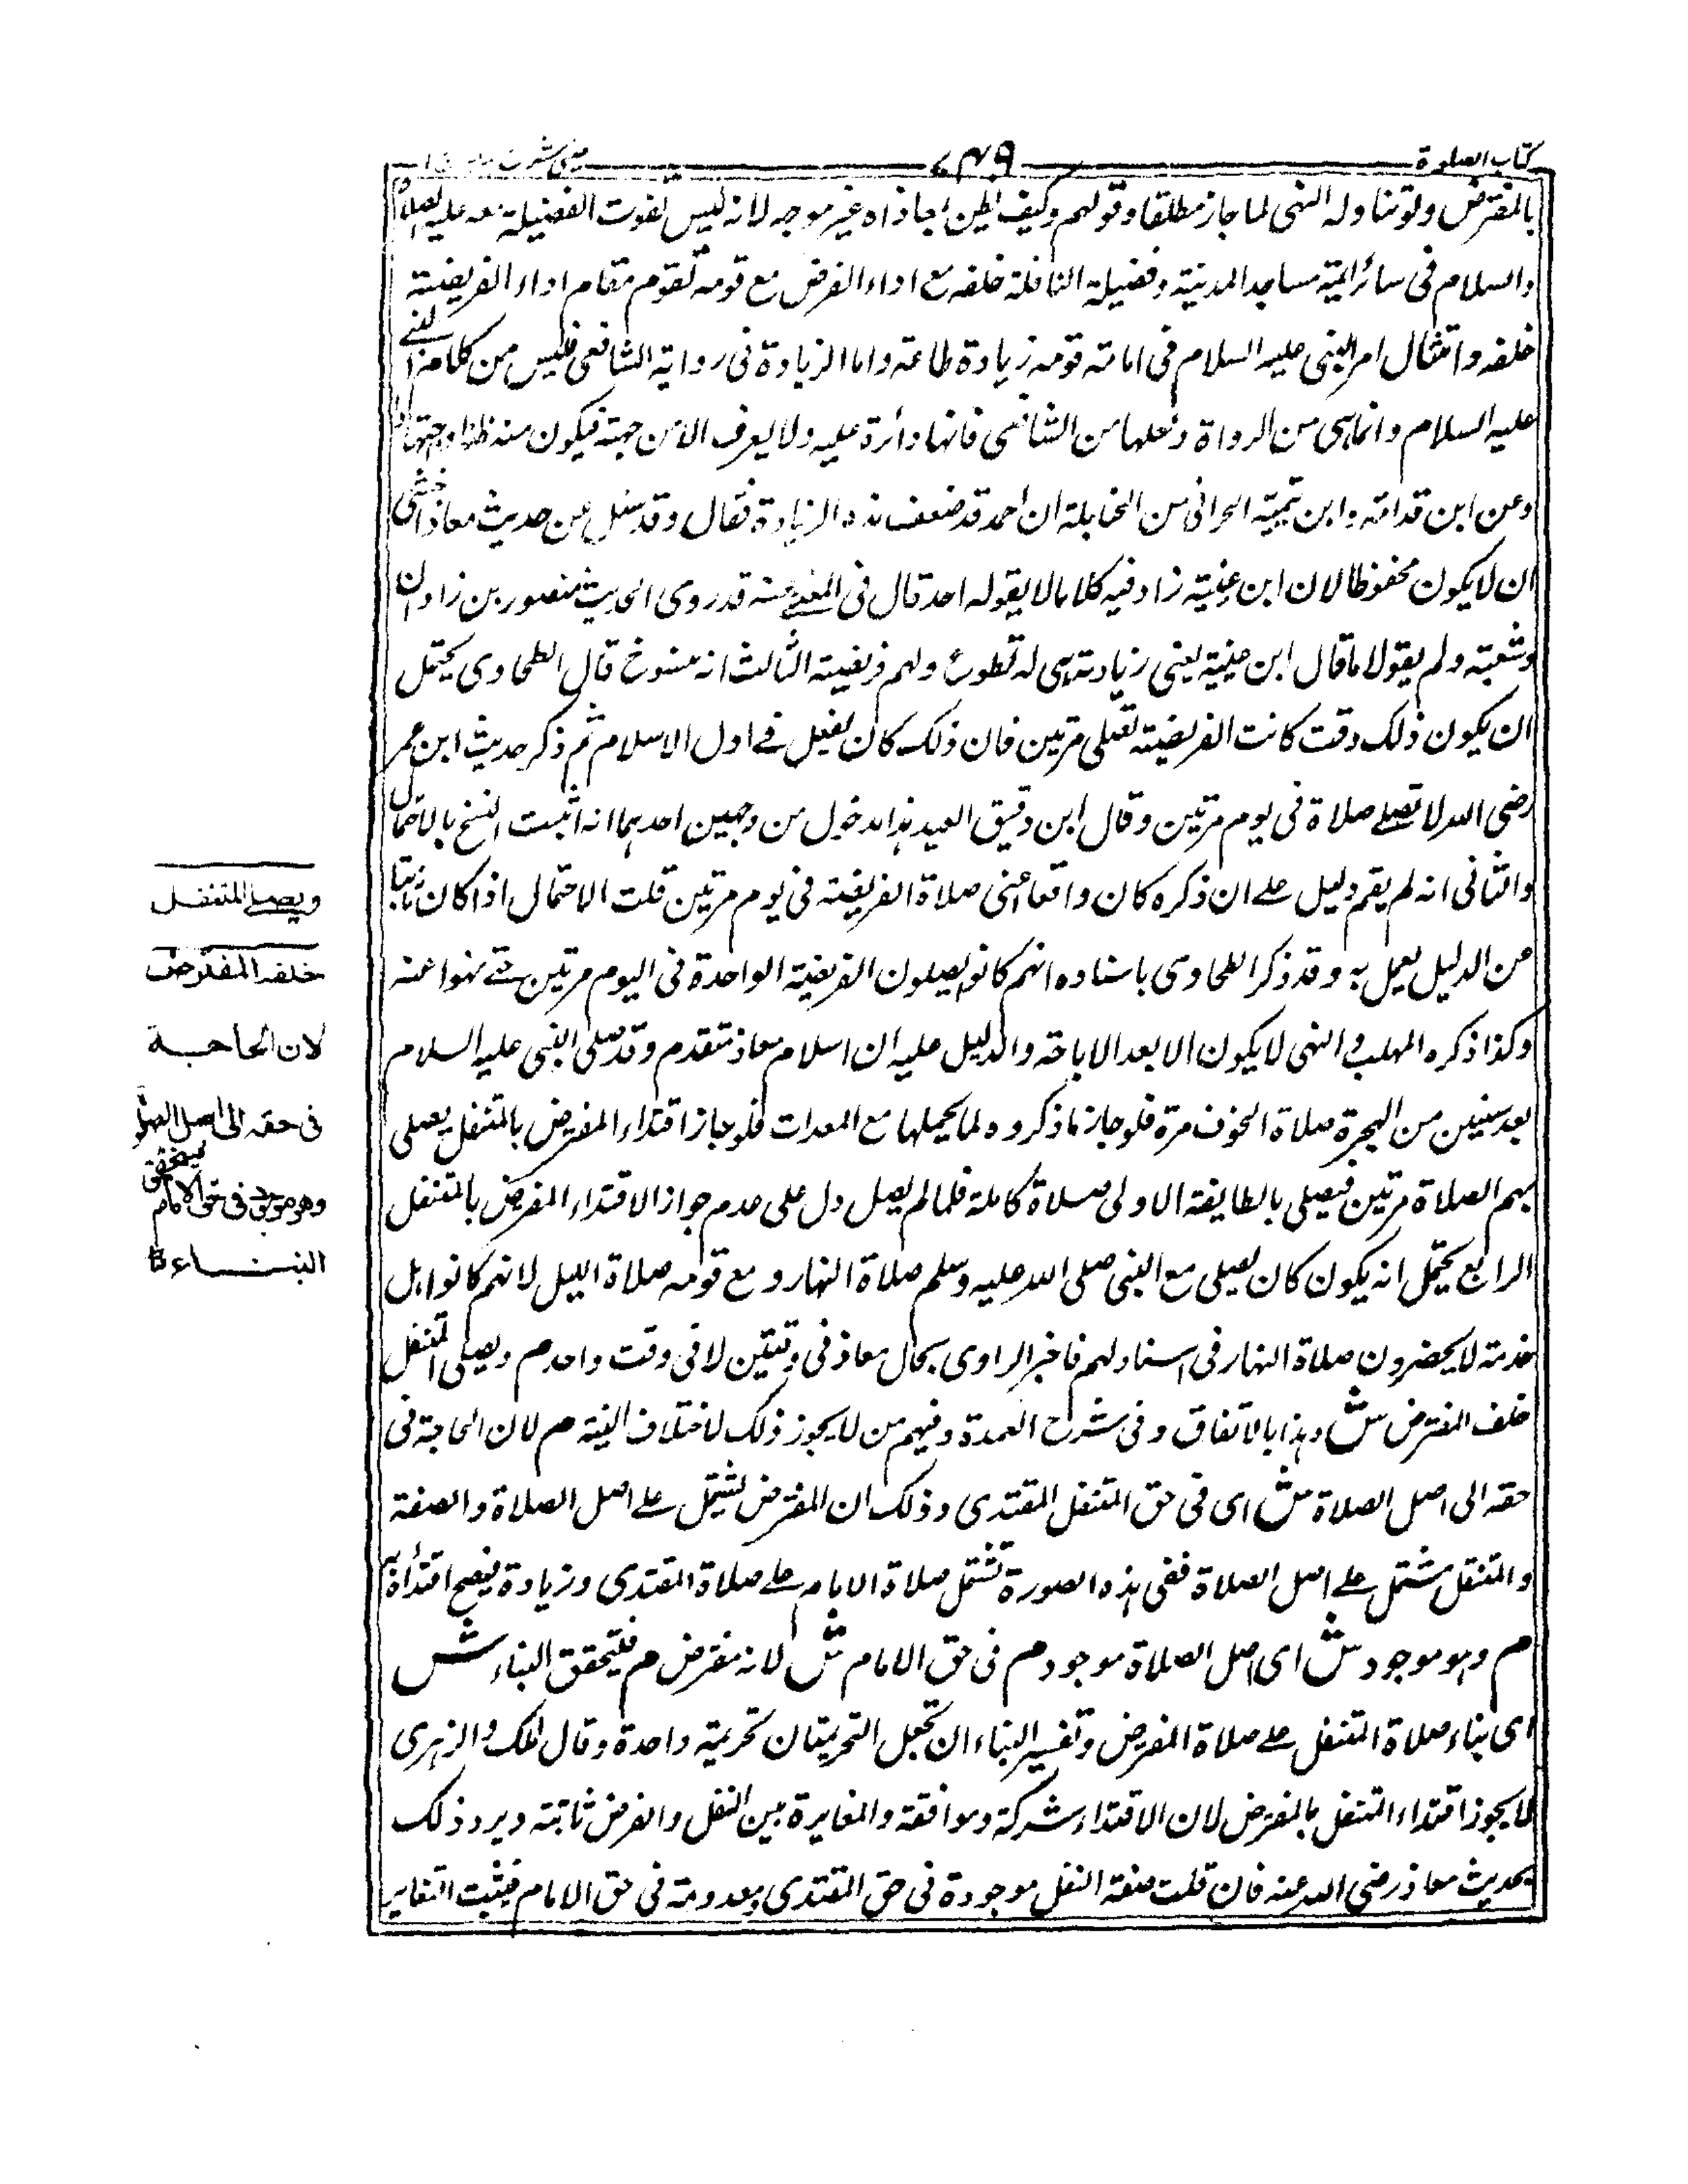 كتاب الصلوة
٧٤٩
بالمفترض ولو تناوله النهى لما جاز مطلقا وقولهم وكيف يظن بمعاذ اه غير موجه لانه ليس تفوت الفضيلة معه عليه الصلاة
والسلام فى سائر ائمة مساجد المدينة وفضيلة النافلة خلفه مع اداء الفرض مع قومه تقوم مقام اداء الفريضة
خلفه وامتثال امر النبى عليه السلام فى امامته قومه زيادة طاعة واما الزيادة فى رواية الشافعى فليس من كلام النبى
عليه السلام وانما هى من الرواة ولعلها من الشافعى فانها دائرة عليه ولا يعرف الا من جهته فيكون منه ظنا واجتهادا
وعن ابن قدامة وابن تيمية الحرانى من الحنابلة ان احمد قد ضعف هذه الزيادة فقال وقد سئل عن حديث معاذ اخشى
ان لا يكون محفوظا لان ابن عيينة زاد فيه كلاما لا يقوله احد قال فى المغنى عنه قد روى الحديث منصور بن زاذان
وشعبة ولم يقولا ما قال ابن عيينة يعنى زيادته هى له تطوع ولهم فريضة الثالث انه منسوخ قال الطحاوى يحتمل
ان يكون ذلك وقت كانت الفريضة تصلى مرتين فان ذلك كان يفعل فى اول الاسلام ثم ذكر حديث ابن عمر
رضى الله لا تصلى صلاة فى يوم مرتين وقال ابن دقيق العيد هذا مدخول من وجهين احدهما انه اثبت النسخ بالاحتمال
والثانى انه لم يقم دليل على ان ذكره كان واقعا اعنى صلاة الفريضة فى يوم مرتين قلت الاحتمال اذا كان ناشيا
عن الدليل يعمل به وقد ذكر الطحاوى باسناده انهم كانوا يصلون الفريضة الواحدة فى اليوم مرتين حتى نهوا عنه
وكذا ذكره المهلب والنهى لا يكون الا بعد الاباحة والدليل عليه ان اسلام معاذ متقدم وقد صلى النبى عليه السلام
بعد سنين من الهجرة صلاة الخوف مرة فلو جاز ما ذكروه لما يحملها مع المعدات فلو جاز اقتداء المفترض بالمتنفل يصلى
بهم الصلاة مرتين فيصلى بالطايفة الاولى صلاة كاملة فلما لم يصل دل على عدم جواز الاقتداء المفترض بالمتنفل
الرابع يحتمل انه يكون كان يصلى مع النبى صلى الله عليه وسلم صلاة النهار و مع قومه صلاة الليل لانهم كانوا اهل
خدمة لا يحضرون صلاة النهار فى اسناد لهم فاخبر الراوى بحال معاذ فى وقتين لا فى وقت واحد م ويصلى المتنفل
خلف المفترض ش وهذا بالاتفاق وفى شرح العمدة وفيهم من لا يجوز ذلك لاختلاف النية م لان الحاجة فى
حقه الى اصل الصلاة ش اى فى حق المتنفل المقتدى وذلك ان المفترض يشتمل على اصل الصلاة والصفة
والمتنفل مشتمل على اصل الصلاة ففى هذه الصورة تشتمل صلاة الامام على صلاة المقتدى وزيادة فيصح اقتداؤه به
م وهو موجود ش اى اصل الصلاة موجود م فى حق الامام ش لانه مفترض م فيتحقق البناء ش
اى بناء صلاة المتنفل على صلاة المفترض وتفسير البناء ان تجعل التحريمتان تحريمة واحدة وقال مالك والزهرى
لا يجوز اقتداء المتنفل بالمفترض لان الاقتداء شركة وموافقة والمغايرة بين النفل والفرض ثابتة ويرد ذلك
بحديث معاذ رضى الله عنه فان قلت صفة النفل موجودة فى حق المقتدى معدومة فى حق الامام فيثبت التغاير
ويصلى المتنفل
خلف المفترض
لان الحاجة
فى حقه الى اصل الصلوة
وهو موجود فى حق الامام فيتحقق
البناء